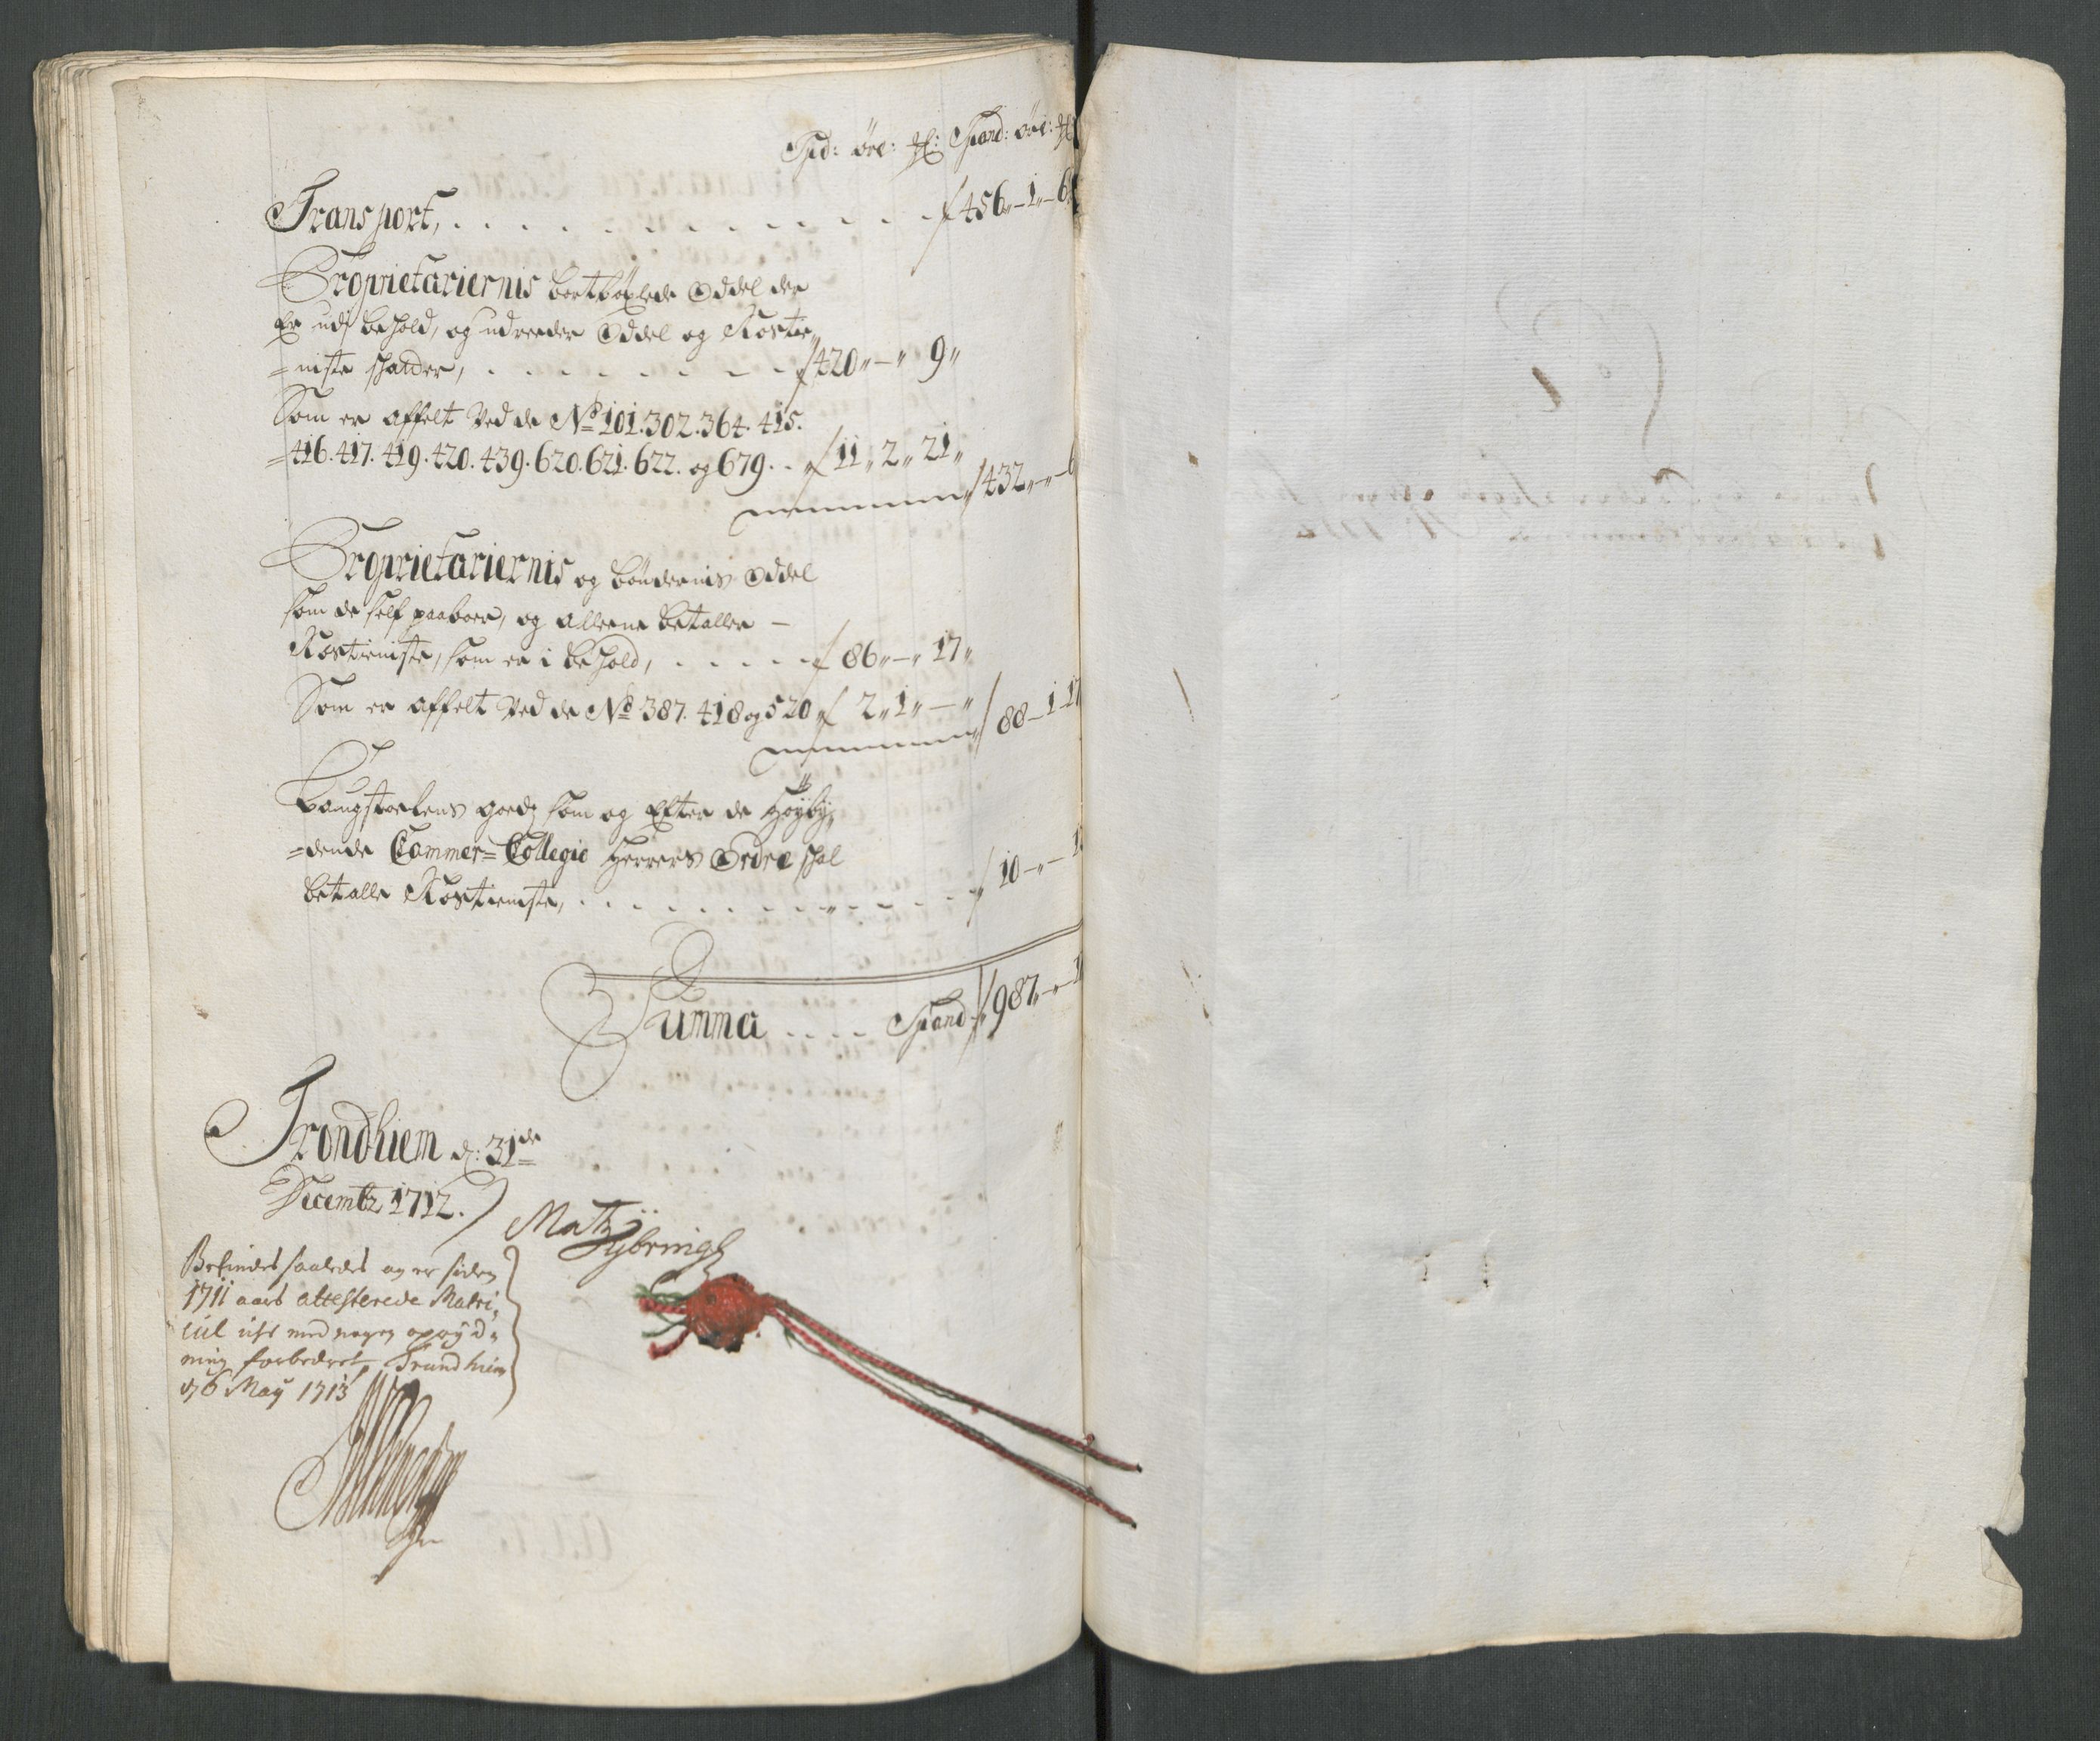 Spd: öre: ℔: Spand: öre: ℔
Transport, . . . . . . . . . . . . 456 „ 1 „ 6
Proprietariernis bortböxlede Oddel der
Er udj behold, og udreeder Oddel og Rostie„
=niste schatter, . . . . . . . 420 „ — „ 9 „
Som er affelt Ved de No 101. 302. 364. 415.
=416. 417. 419. 420. 439. 620. 621. 622. og 679. . 11 „ 2 „ 21 „
432 „ — „ 6
Proprietariernis og böndernis Oddel
som de self paaboer, og alleene betaller —
Rostieniste, som er i behold, . . . . . 86 „ — „ 17 „
Som er affelt Ved de No 387. 418 og 520 „ 2 „ 1 „ — „
88 — 1 — 17
Laugstoelens goedz som og Efter de Höÿbÿ„
=dende Cammer=Collegie Herrers Ordre schal
betalle Rostieniste, . . . . . . . . . . . 10 „ —
Summa . . . . Spand „ 987 „ —
Trondhiem d: 31de
Decembr 1712.
Matz Nÿbringh
Befindes saaledes og er siden
1711 aars attesterede Matri„
cul icke med nogen oprÿd„
ning forbedret, Trundhiem
d 6 Maÿ 1713